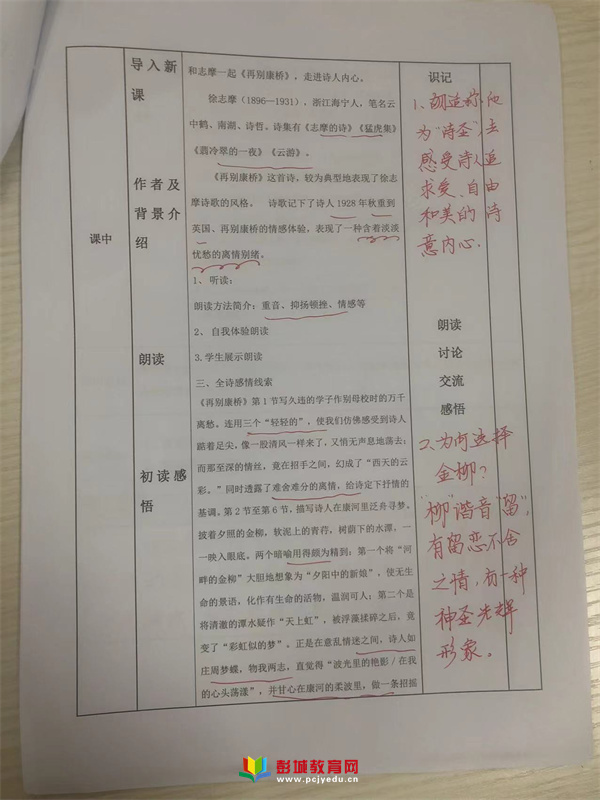 课中
导入新
课
作者及
背景介
绍
朗读
初读感
悟
和志摩一起《再别康桥》，走进诗人内心。
徐志摩（1896—1931），浙江海宁人，笔名云
中鹤，南湖、诗哲。诗集有《志摩的诗》《猛虎集》
《翡冷翠的一夜》《云游》。
《再别康桥》这首诗，较为典型地表现了徐志
摩诗歌的风格。 诗歌记下了诗人 1928 年秋重到
英国、再别康桥的情感体验，表现了一种含着淡淡
忧愁的离情别绪。
1、 听读：
朗读方法简介：重音、抑扬顿挫、情感等
2、 自我体验朗读
3.学生展示朗读
三、全诗感情线索
《再别康桥》第 1 节写久违的学子作别母校时的万千
离愁。连用三个“轻轻的”，使我们仿佛感受到诗人
踮着足尖，像一股清风一样来了，又悄无声息地荡去；
而那至深的情丝，竟在招手之间，幻成了“西天的云
彩。”同时透露了难舍难分的离情，给诗定下抒情的
基调。第 2 节至第 6 节，描写诗人在康河里泛舟寻梦。
披着夕照的金柳，软泥上的青荇，树荫下的水潭，一
一映入眼底。两个暗喻用得颇为精到：第一个将“河
畔的金柳”大胆地想象为“夕阳中的新娘”，使无生
命的景语，化作有生命的活物，温润可人；第二个是
将清澈的潭水疑作“天上虹”，被浮藻揉碎之后，竟
变了“彩虹似的梦”。正是在意乱情迷之间，诗人如
庄周梦蝶，物我两忘，直觉得“波光里的艳影/在我
的心头荡漾”，并甘心在康河的柔波里，做一条招摇
识记
1、胡适称他
为“诗圣”，去
感受诗人追
求爱、自由
和美的诗
意内心。
朗读
讨论
交流
感悟
2、为何选择
金柳？
“柳”谐音“留”，
有留恋不舍
之情，有一种
神圣光辉
形象。
彭城教育网
www.pcjyedu.com